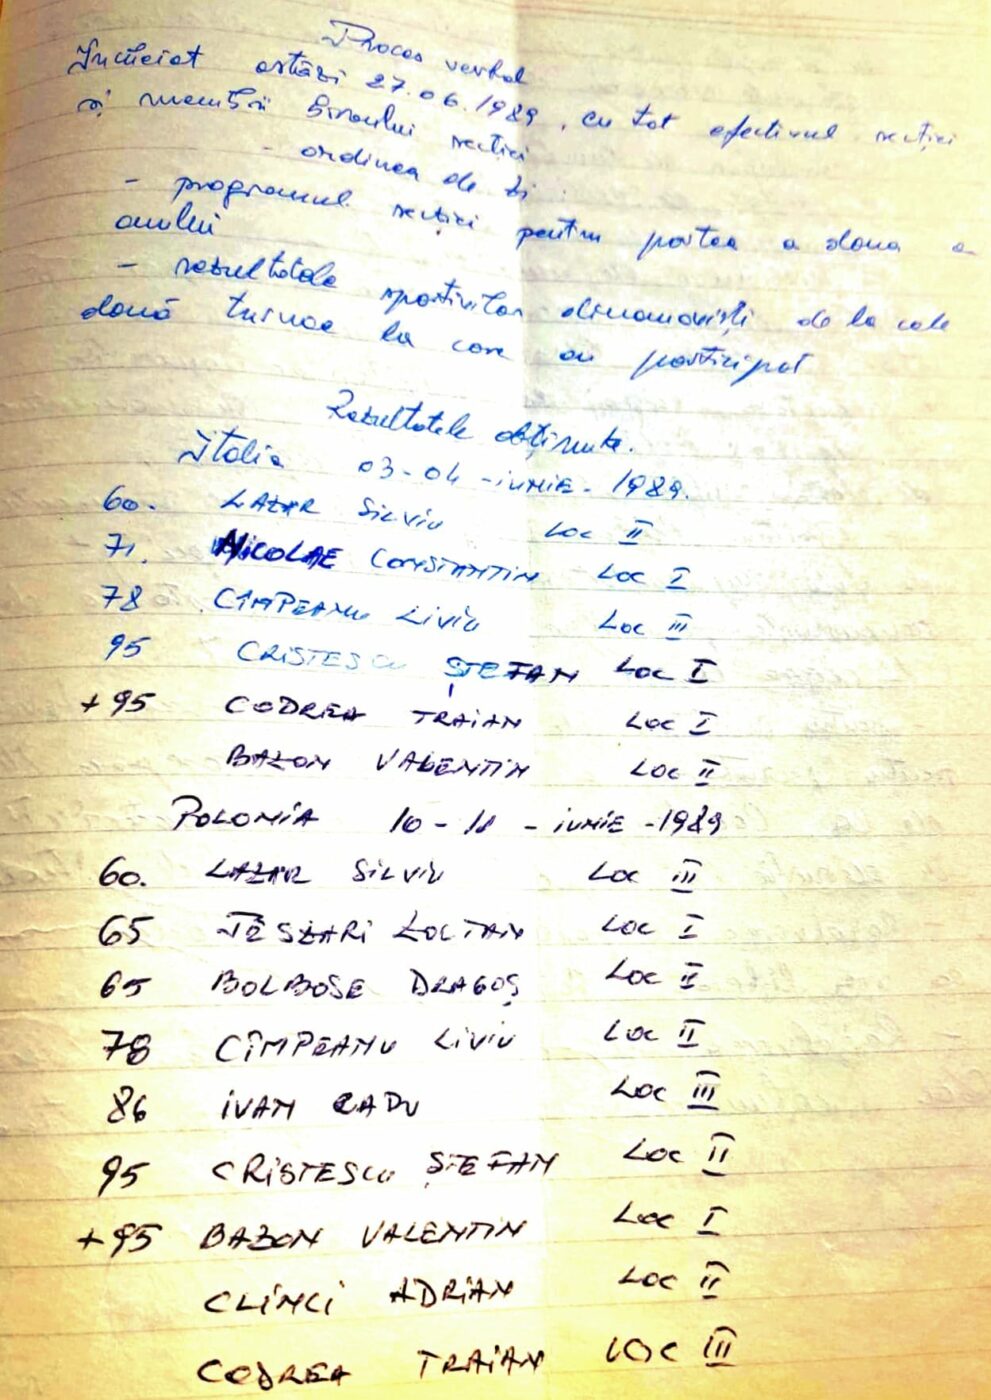 Proces verbal
Încheiat astăzi 27.06.1989, cu tot efectivul secției
și membrii biroului secției
- ordinea de zi
- programul secției pentru partea a doua a
anului
- rezultatele sportivilor dinamoviști de la cele
două turnee la care au participat
Rezultatele obținute.
Italia 03-04-iunie-1989.
60. LAZAR SILVIU LOC II
71. NICOLAE CONSTANTIN LOC I
78 CÎMPEANU LIVIU LOC III
95 CRISTESCU ȘTEFAN LOC I
+95 CODREA TRAIAN LOC I
BAZON VALENTIN LOC II
POLONIA 10-11-iunie-1989
60. LAZAR SILVIU LOC III
65 TESZARI ZOLTAN LOC I
65 BOLBOSE DRAGOȘ LOC II
78 CÎMPEANU LIVIU LOC II
86 IVAN RADU LOC III
95 CRISTESCU ȘTEFAN LOC II
+95 BAZON VALENTIN LOC I
CLINCI ADRIAN LOC II
CODREA TRAIAN LOC III